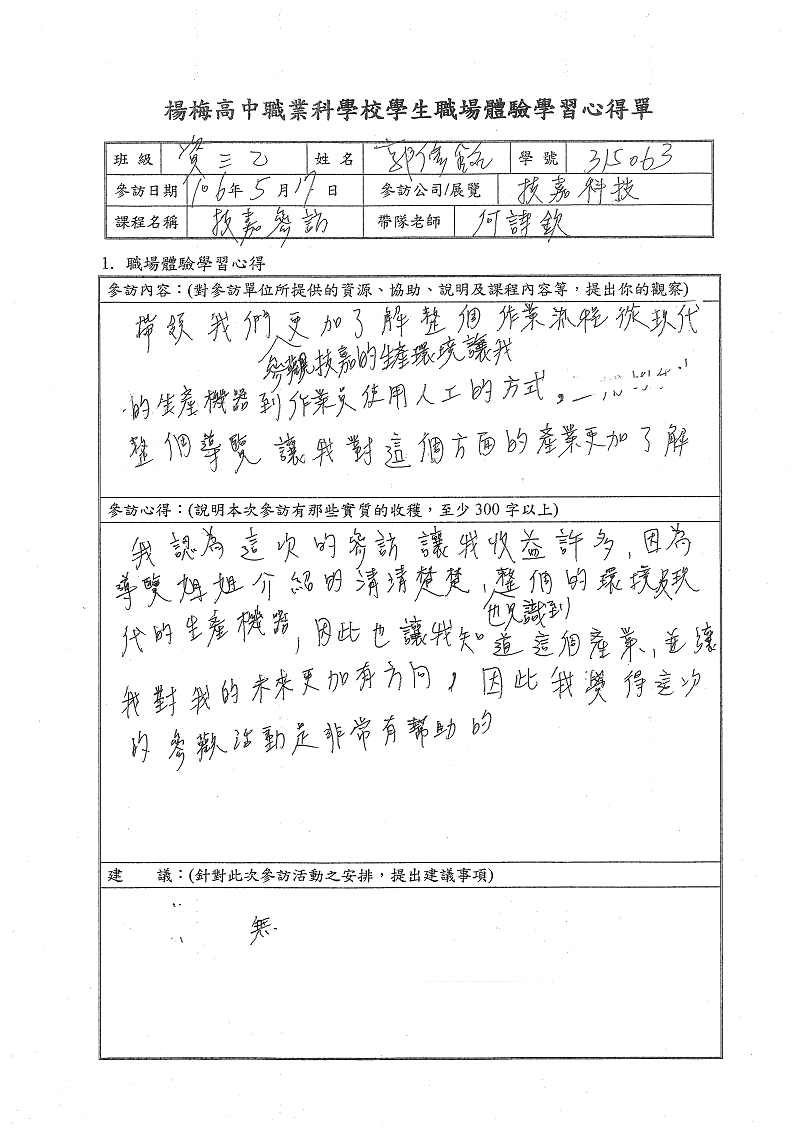 楊梅高中職業科學校學生職場體驗學習心得單
班級 資三乙 姓名 郭 學號 315063
參訪日期 106年5月17日 參訪公司/展覽 技嘉科技
課程名稱 技嘉參訪 帶隊老師 何詩欽
1. 職場體驗學習心得
參訪內容：(對參訪單位所提供的資源、協助、說明及課程內容等，提出你的觀察)
帶領我們更加了解整個作業流程從現代
參觀技嘉的生產環境讓我
的生產機器到作業員使用人工的方式。
整個導覽讓我對這個方面的產業更加了解
參訪心得：(說明本次參訪有那些實質的收穫，至少 300 字以上)
我認為這次的參訪讓我收益許多，因為
導覽姐姐介紹的清清楚楚，整個的環境及現
也見識到
代的生產機器，因此也讓我知道這個產業、並讓
我對我的未來更加有方向，因此我覺得這次
的參觀活動是非常有幫助的
建議：(針對此次參訪活動之安排，提出建議事項)
無